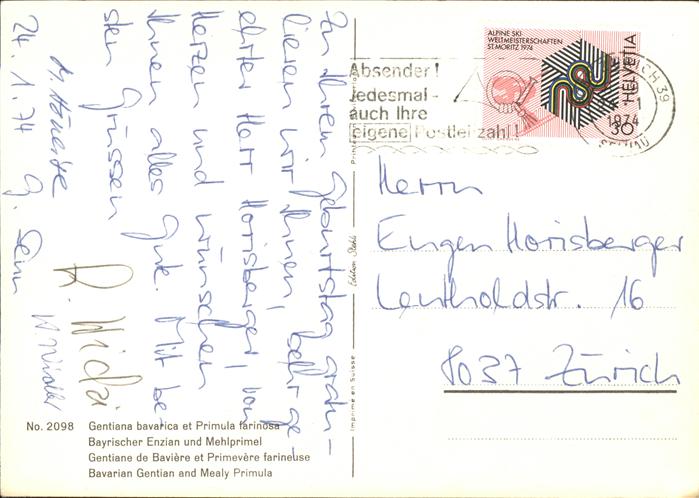 Zu Ihrem Geburtstag gratu-
lieren wir Ihnen, sehr ge-
ehrter Herr Horisberger, von
Herzen und wünschen
Ihnen alles Gute. Mit be-
sten Grüssen
24. 1. 74
G. Senn
No. 2098 Gentiana bavarica et Primula farinosa
Bayrischer Enzian und Mehlprimel
Gentiane de Bavière et Primevère farineuse
Bavarian Gentian and Mealy Primula
Edition Stehli
Imprimé en Suisse
Absender!
Jedesmal -
auch Ihre
eigene Postleitzahl!
ALPINE SKI
WELTMEISTERSCHAFTEN
ST. MORITZ 1974
HELVETIA
30
1974
Herrn
Eugen Horisberger
Leutholdstr. 16
8037 Zürich